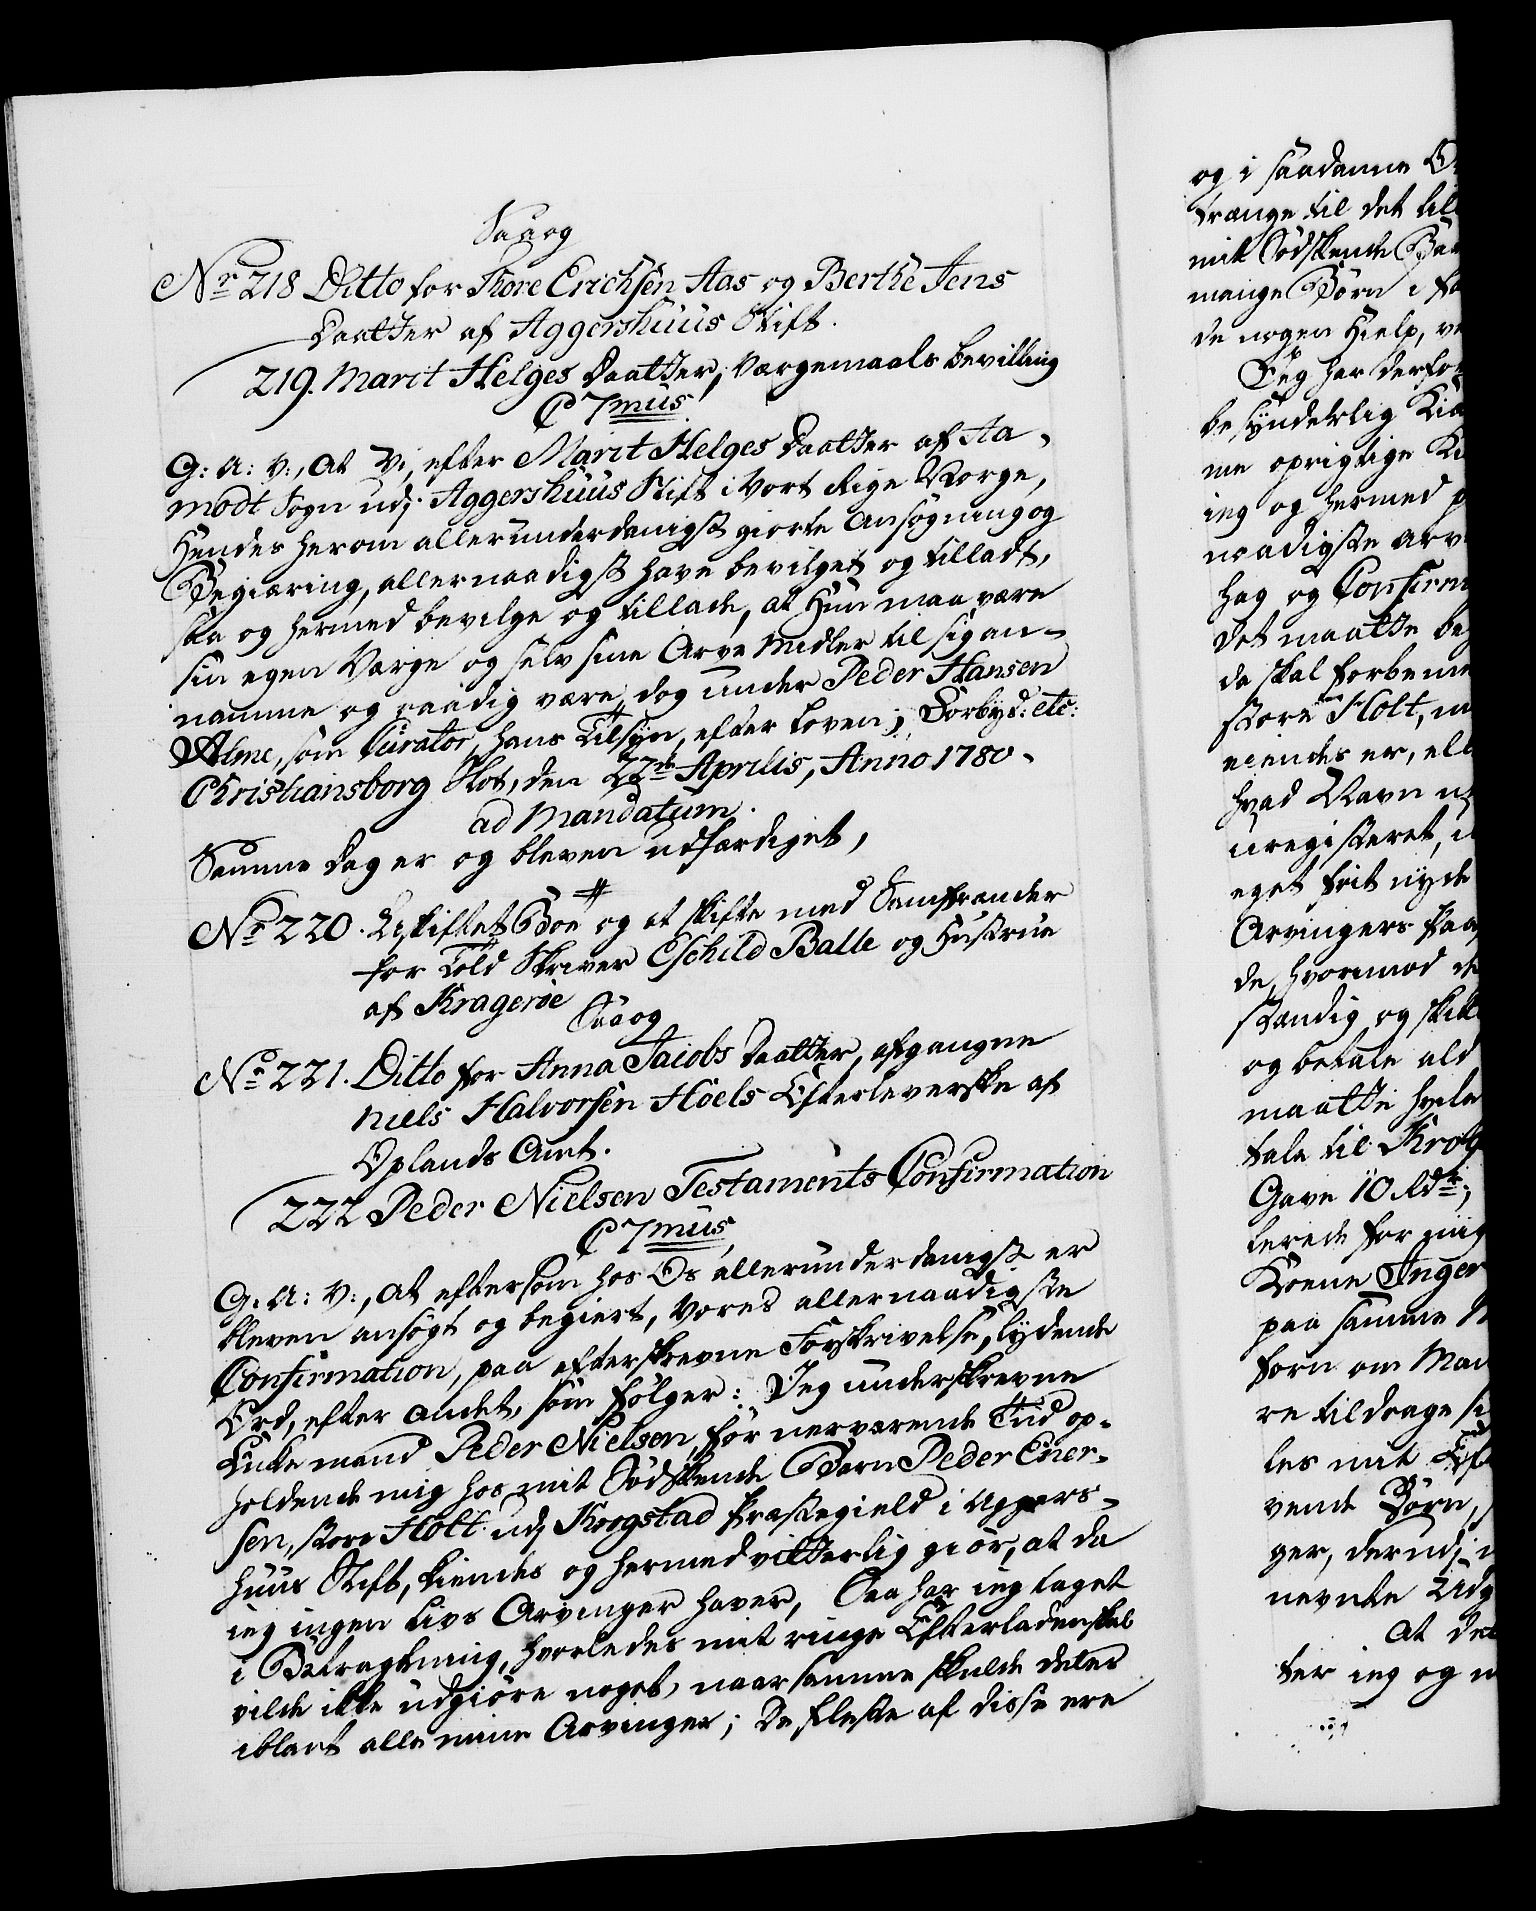 Saa og
No 218 Ditto for Thore Erichsen Aas og Berthe Jens
Daatter af Aggershuus Stift.
219. Marit Helges Daatter, Værgemaals bevilling
C 7mus
G: A: V:, At Vi, efter Marit Helges Daatter af Aa-
modt Sogn udj Aggershuus Stift i Vort Rige Norge,
Hendes herom allerunderdanigst giorte Ansøgning og
Begiæring, allernaadigst have bevilget og tilladt,
saa og hermed bevilge og tillade, at Hun maa være
sin egen Værge og selv sine Arve Midler til sig an-
namme og raadig være, dog under Peder Hansen
Alme, som Curator, hans Tilsyn, efter Loven; Forbyd: etc:
Christiansborg Slot, den 22de Aprilis, Anno 1780.
ad Mandatum.
Samme Dag er og bleven udfærdiget,
No 220. Uskiftet Boe og at skifte med Samfrænder
for Told Skriver Eschild Balle og Hustrue
af Kragerøe
Saa og
No 221. Ditto for Anna Jacobs Daatter, afgangne
Niels Halvorsen Hoels Efterleverske af
Oplands Amt.
222 Peder Nielsen Testaments Confirmation
C 7mus
G: A: V:, At eftersom hos Os allerunderdanigst er
bleven ansøgt og begiert, Vores allernaadigste
Confirmation, paa efterskrevne Forskrivelse, lydende
Ord, efter andet, som følger: Jeg underskrevne
Enke mand Peder Nielsen, for nerværende Tid op-
holdende mig hos mit Sødskende Barn Peder Ener-
sen, store Holt udj Krogstad Præstegield i Aggers-
huus Stift, kiendes og hermed vitterlig giør, at da
ieg ingen Livs Arvinger haver, Saa har ieg taget
i Betragtning, hvorledes mit ringe Efterladenskab
vilde ikke udgiøre noget, naar samme skulde deles
iblant alle mine Arvinger; De fleste af disse ere
og i saadanne
trænge til det
mit Sødskende
mange Børn i
de nogen Hielp,
Jeg har derfor
besynderlig
me oprigtige
ieg og hermed
naadigste
hag og Confirm
Det maatte
da skal forbeme
store Holt,
eiendes er,
hvad Navn
uregisteret,
eget frit nyde
Arvingers
de, hvorimod
stændig og
og betale
maatte hvile
tale til Krog
Gave 10 Rdr;
lerede for mig
Kone Inger
paa samme
forn om
re tildrage
les mit
vende Børn,
ger, derudj
nevnte
At det
ter ieg og